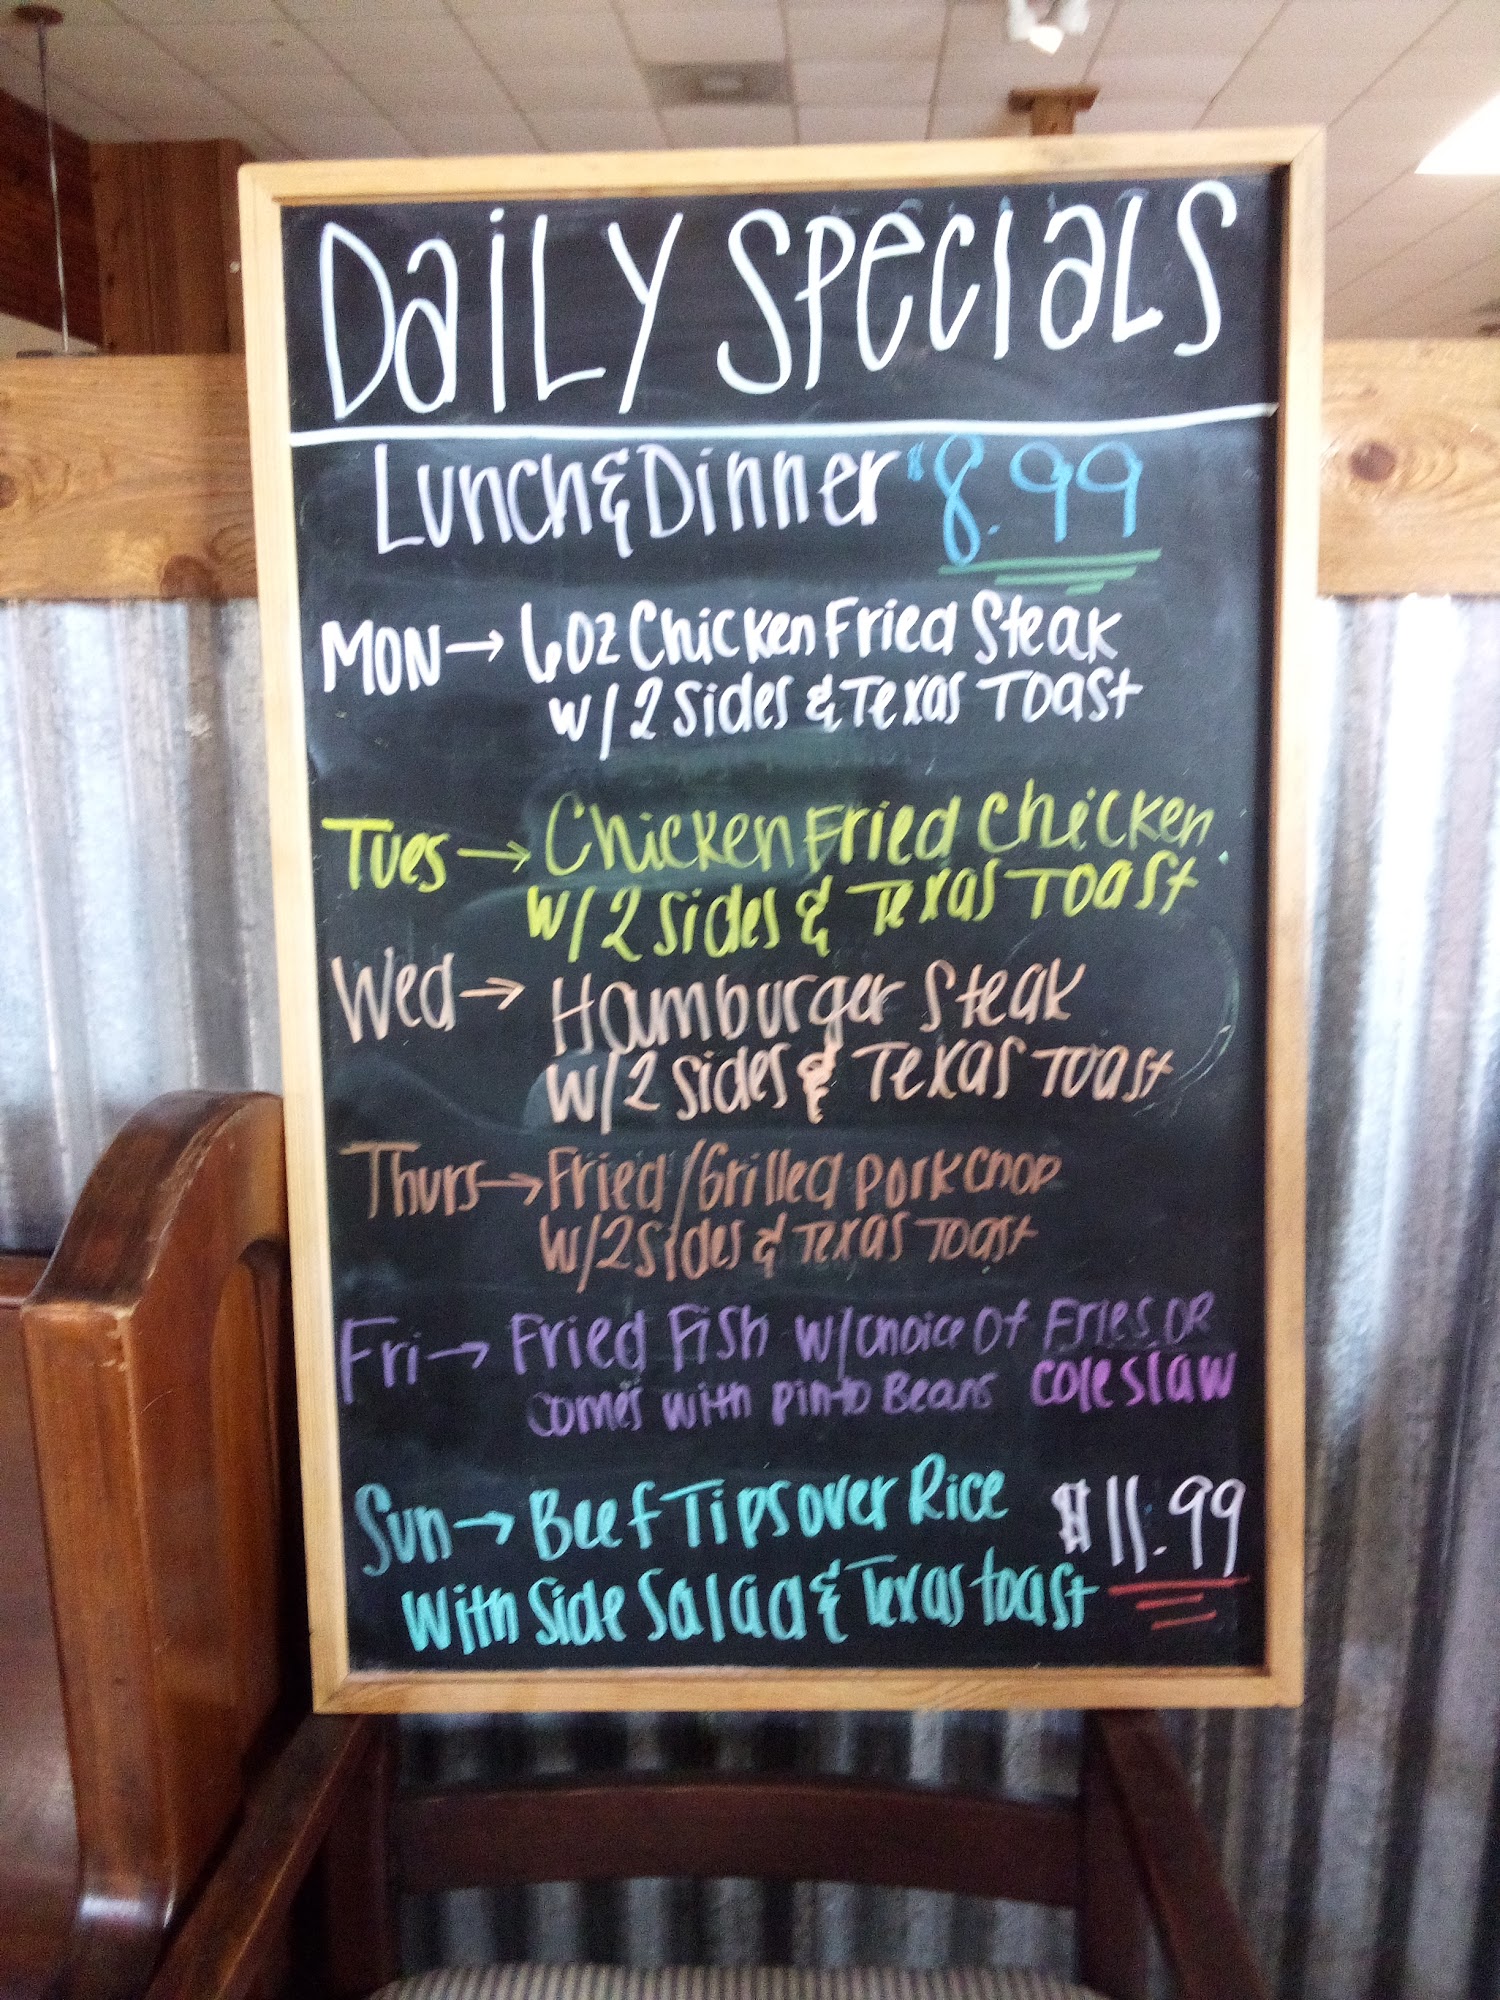 Daily Specials
Lunch & Dinner $8.99
MON → 6oz Chicken Fried Steak
w/ 2 sides & Texas Toast
Tues → Chicken Fried Chicken
w/ 2 sides & Texas Toast
Wed → Hamburger Steak
w/ 2 sides & Texas Toast
Thurs → Fried/Grilled Pork Chop
w/ 2 sides & Texas Toast
Fri → Fried Fish w/ choice of Fries or
comes with pinto Beans coleslaw
Sun → Beef Tips over Rice $11.99
With Side Salad & Texas toast